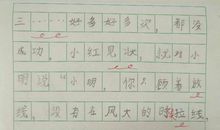 三……好多好多次，都没
成功，小红见状，就对小
明说“小明，你不顾着放
线，没有在风大的时拉线